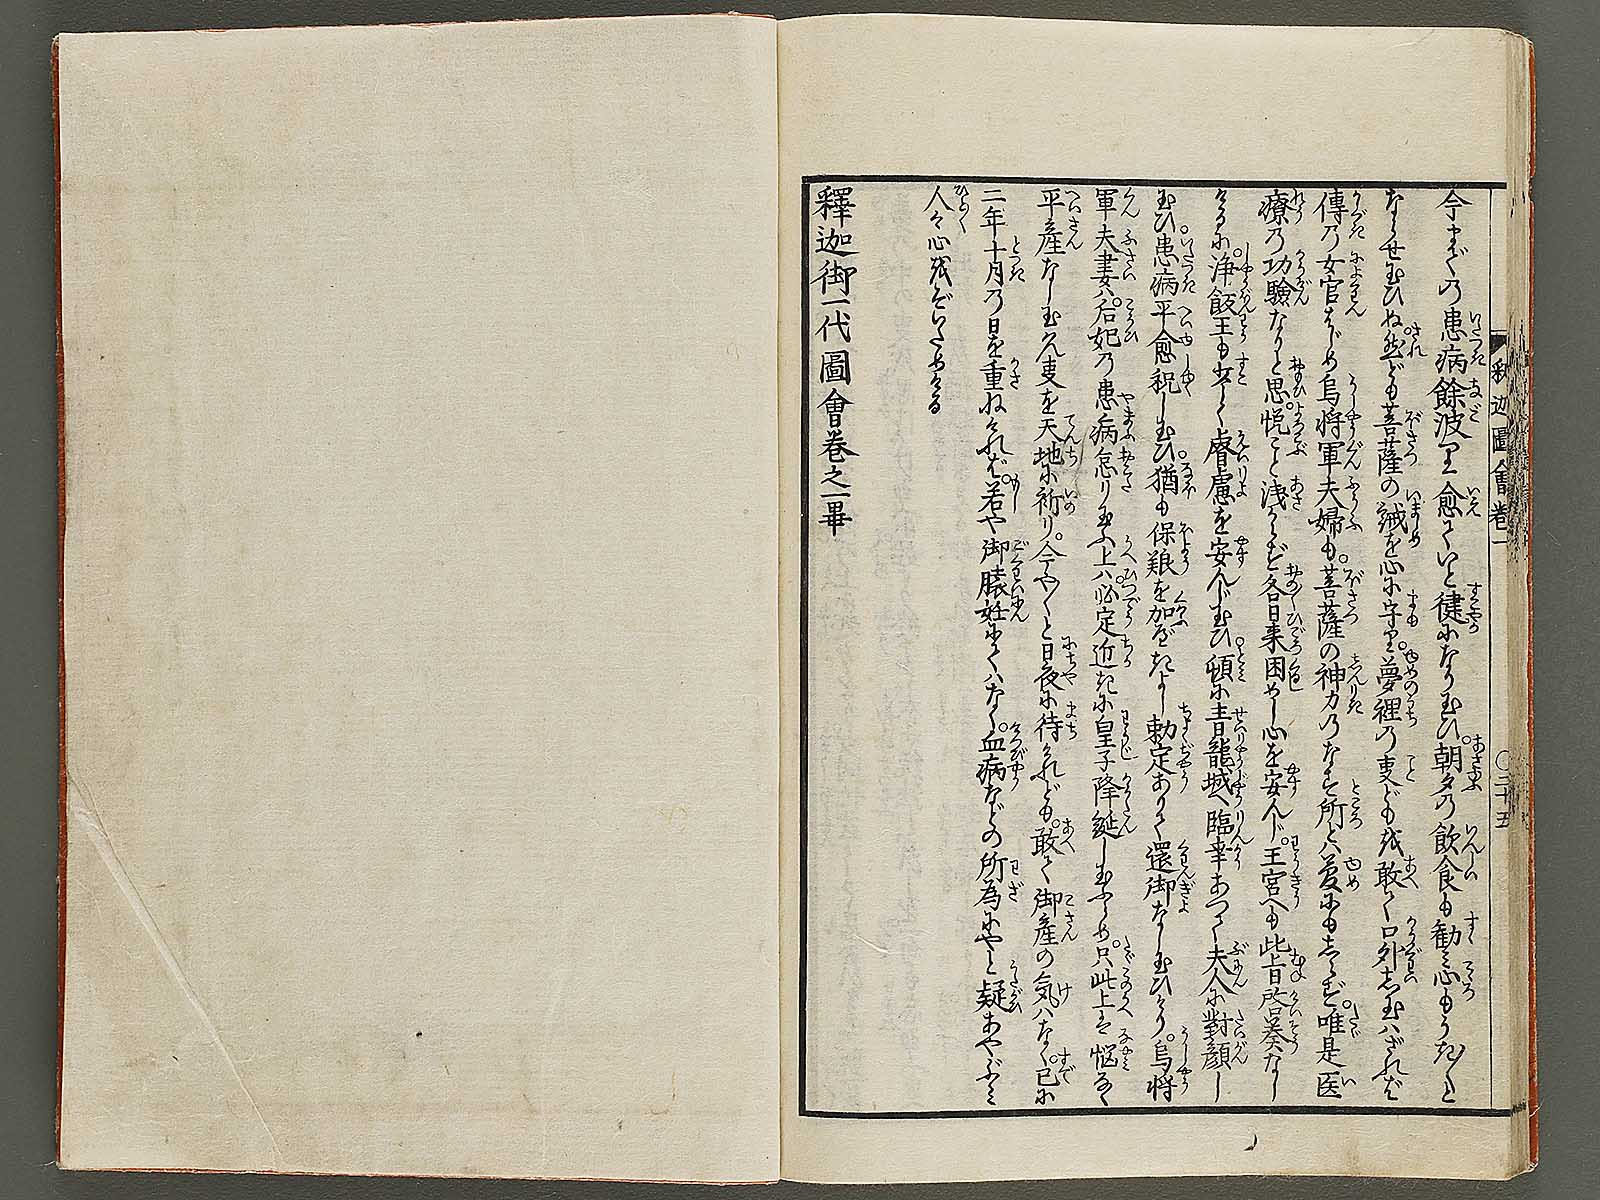 今までの患病餘波里愈ていと健になり玉ひ。朝夕の飲食も勧み心もうき〳〵と
ならせ玉ひぬ。然ども菩薩の誡を心に守り。夢裡の事どもを敢て口外し玉ハざれば
傳の女官はじめ烏将軍夫婦も。菩薩の神力のなす所とハ夢にもしらず。唯是医
療の功験なりと思。悦こと浅からず各日来困めし心を安んじ。王宮へも此旨啓奏なし
けるに。浄飯王も少しく睿慮を安んじ玉ひ頓に青龍城へ臨幸あつて夫人に對顔し
玉ひ。患病平愈祝し玉ひ。猶も保艱を加ふべきよし勅定ありて還御なし玉ひけり。烏将
軍夫妻ハ。后妃の患病怠り玉ふ上ハ。必定近きに皇子降誕し玉ふらめ。只此上は悩なく
平産なし玉へ。事を天地に祈り。今や〳〵と日夜に待けれども。敢て御産の気ハなく。已に
二年十月の日を重ねければ。若や御膿妊にてハなく。血病などの所為にやと疑あやぶみ
人々心をぞいためける
釋迦御一代圖會巻之一畢
釈迦圖會巻一
〇三十五